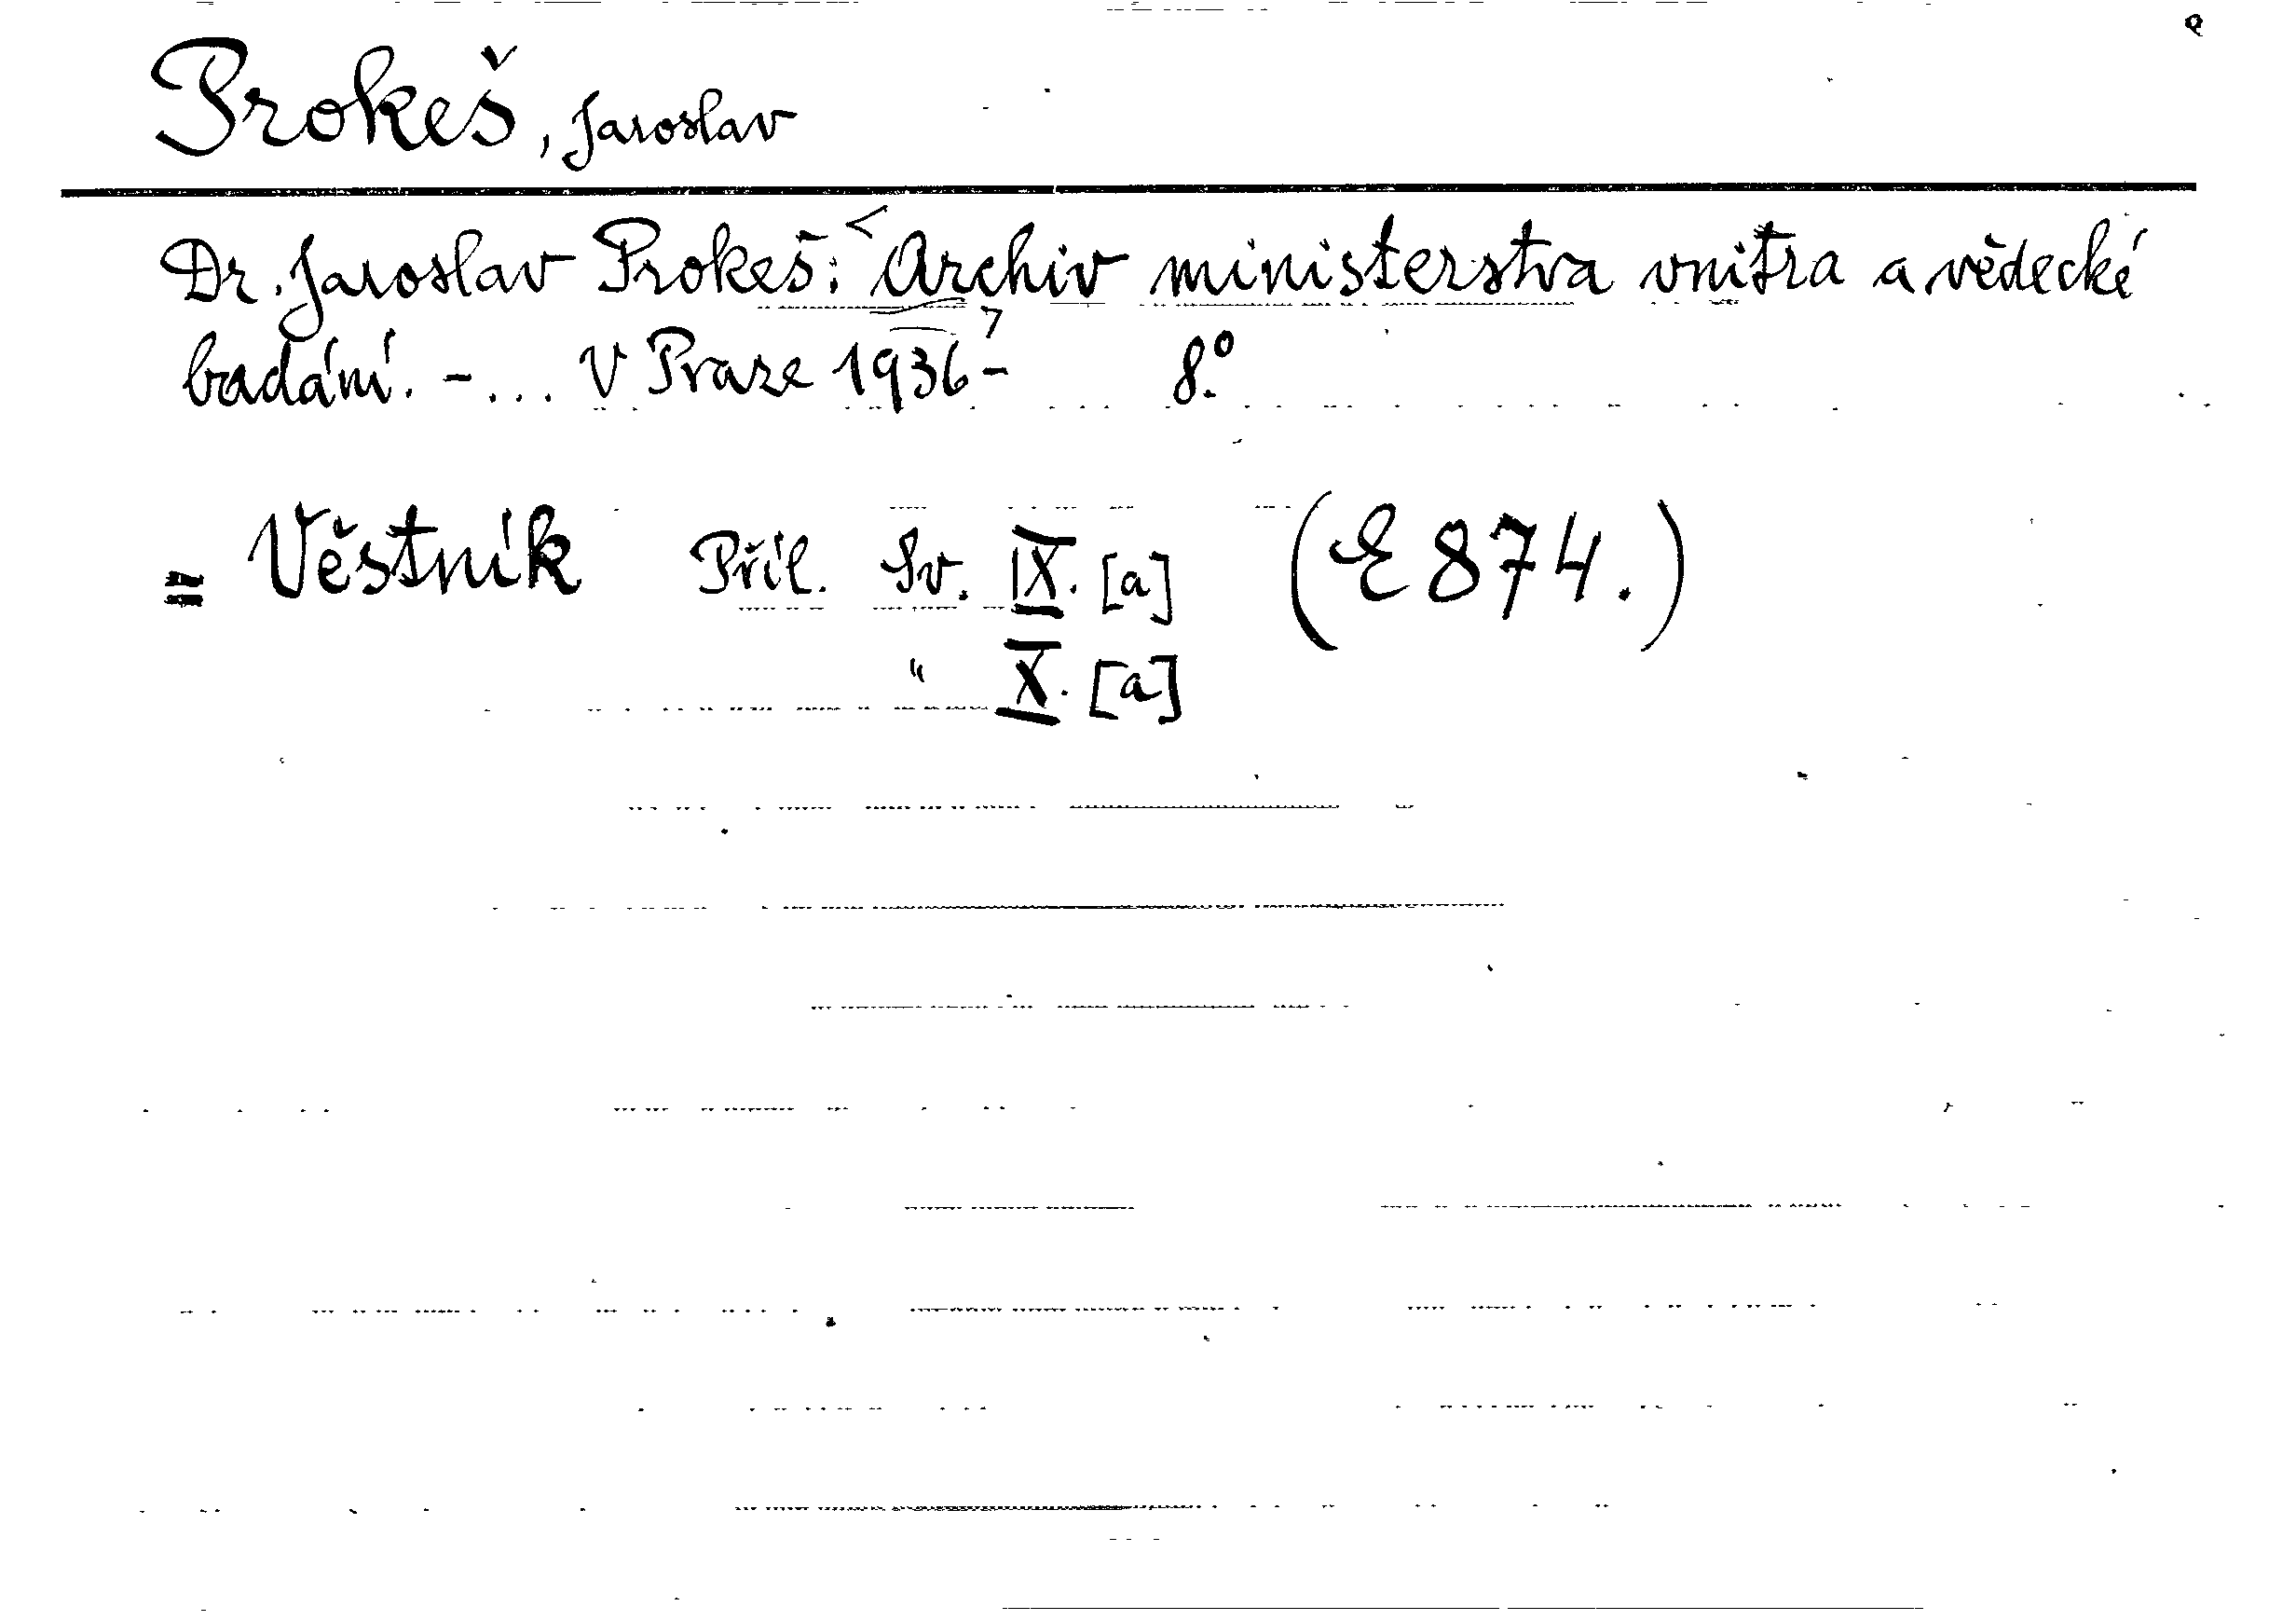 Prokeš, Jaroslav
Dr. Jaroslav Prokeš: <Archiv ministerstva vnitra a vědecké
badání. - ... V Praze 1936 - 8.°
= Věstník Příl. Sv. IX. [a] (E 874.)
" X. [a]